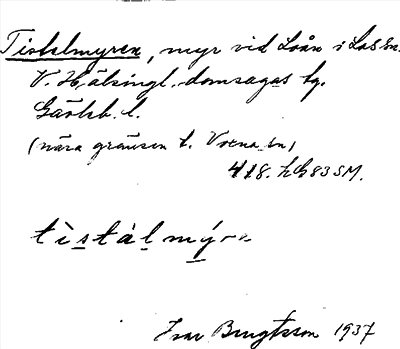 Tistelmyren, myr vid Loån i Los sn.
V. Hälsingl. domsagas tg.
Gävleb. l.
(nära gränsen t. Voxna sn)
418. h G 83 SM.
tìstàlmýrn
Ivar Bengtsson 1937